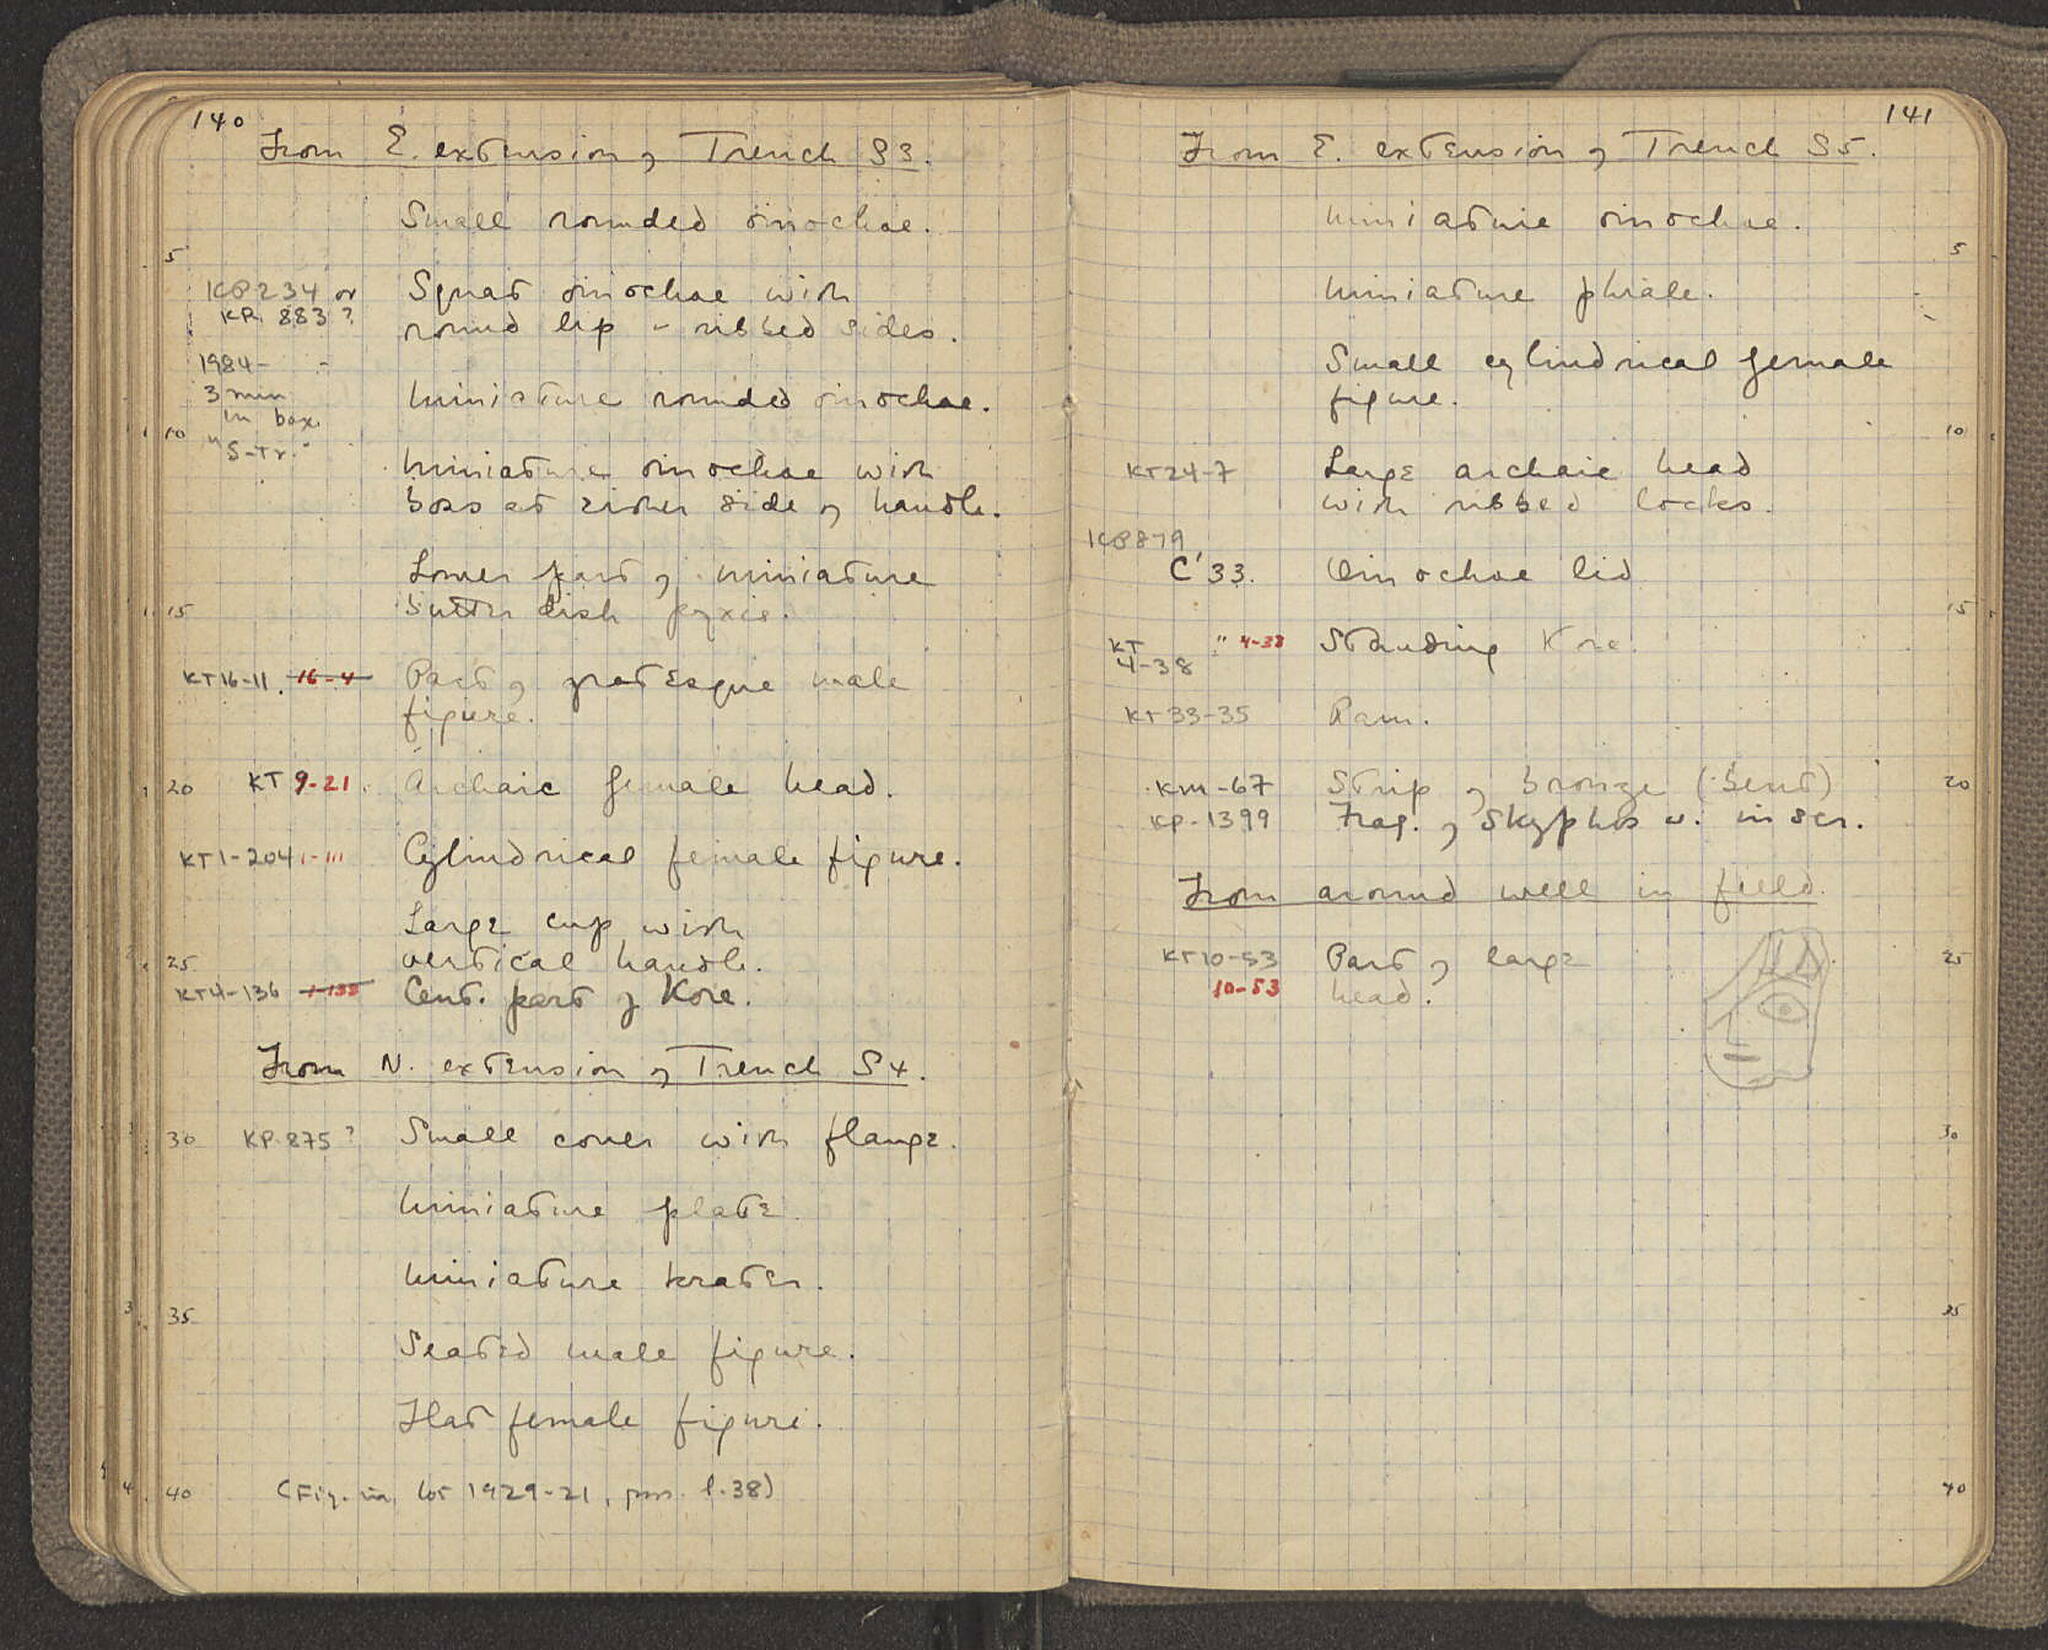 140
From E. extension of Trench S3.
Small rounded oinochoe.
5
KP234 or
KP. 883?
Squat oinochoe with
round lip - ribbed sides.
1984-
3 min
in box
"S-Tr."
Miniature rounded oinochoe.
10
Miniature oinochoe with
boss at either side of handle.
Lower part of miniature
15 butter dish pyxis.
KT16-11. 16-4 Part of grotesque male
figure.
20 KT 9-21. Archaic female head.
KT1-204 1-111 Cylindrical female figure.
Large cup with
25 vertical handle.
KT4-136 Cent. part of Kore.
From N. extension of Trench S4.
30 KP-875? Small cover with flange.
Miniature plate.
Miniature krater.
35
Seated male figure.
Flat female figure.
40 (Fig. in lot 1929-21, l.38)
141
From E. extension of Trench S5.
Miniature oinochoe.
5
Miniature phiale.
Small cylindrical female
figure.
10
KT24-7 Large archaic head
with ribbed locks.
KP879
C'33. Oinochoe lid
15
KT " 4-38 Standing Kore.
4-38
KT33-35 Ram.
KM-67 Strip of bronze (Bent) 20
KP-1399 Frag. of Skyphos w. inscr.
From around well in field.
KT10-53 Part of large 25
10-53 head.
30
35
40